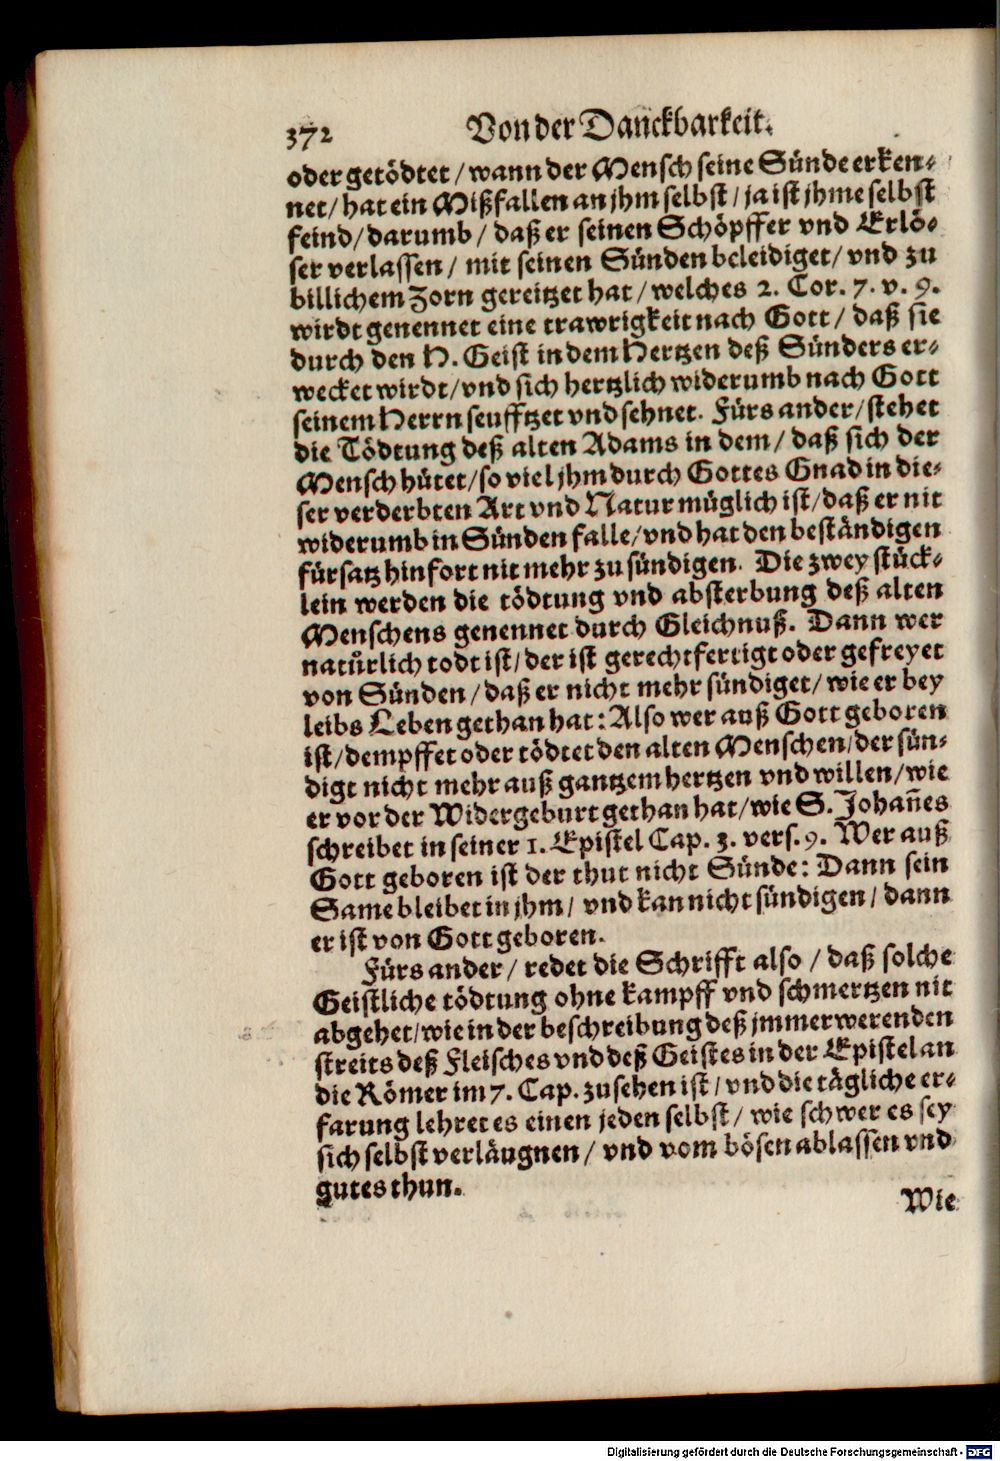 372 Von der Danckbarkeit.
oder getödtet / wann der Mensch seine Sünde erken-
net / hat ein Mißfallen an jhm selbst / ja ist jhme selbst
feind / darumb / daß er seinen Schöpffer vnd Erlö-
ser verlassen / mit seinen Sünden beleidiget / vnd zu
billichem Zorn gereitzet hat / welches 2. Cor. 7. v. 9.
wirdt genennet eine trawrigkeit nach Gott / daß sie
durch den H. Geist in dem Hertzen deß Sünders er-
wecket wirdt / vnd sich hertzlich widerumb nach Gott
seinem Herrn seufftzet vnd sehnet. Fürs ander / stehet
die Tödtung deß alten Adams in dem / daß sich der
Mensch hütet / so viel jhm durch Gottes Gnad in die-
ser verderbten Art vnd Natur müglich ist / daß er nit
widerumb in Sünden falle / vnd hat den beständigen
fürsatz hinfort nit mehr zu sündigen. Die zwey stück-
lein werden die tödtung vnd absterbung deß alten
Menschens genennet durch Gleichnuß. Dann wer
natürlich todt ist / der ist gerechtfertigt oder gefreyet
von Sünden / daß er nicht mehr sündiget / wie er bey
leibs Leben gethan hat: Also wer auß Gott geboren
ist / dempffet oder tödtet den alten Menschen / der sün-
digt nicht mehr auß gantzem hertzen vnd willen / wie
er vor der Widergeburt gethan hat / wie S. Johan̄es
schreibet in seiner 1. Epistel Cap. 3. vers. 9. Wer auß
Gott geboren ist der thut nicht Sünde: Dann sein
Same bleibet in jhm / vnd kan nicht sündigen / dann
er ist von Gott geboren.
Fürs ander / redet die Schrifft also / daß solche
Geistliche tödtung ohne kampff vnd schmertzen nit
abgehet / wie in der beschreibung deß jmmerwerenden
streits deß Fleisches vnd deß Geistes in der Epistel an
die Römer im 7. Cap. zu sehen ist / vnd die tägliche er-
farung lehret es einen jeden selbst / wie schwer es sey
sich selbst verläugnen / vnd vom bösen ablassen vnd
gutes thun.
Wie
Digitalisierung gefördert durch die Deutsche Forschungsgemeinschaft - DFG